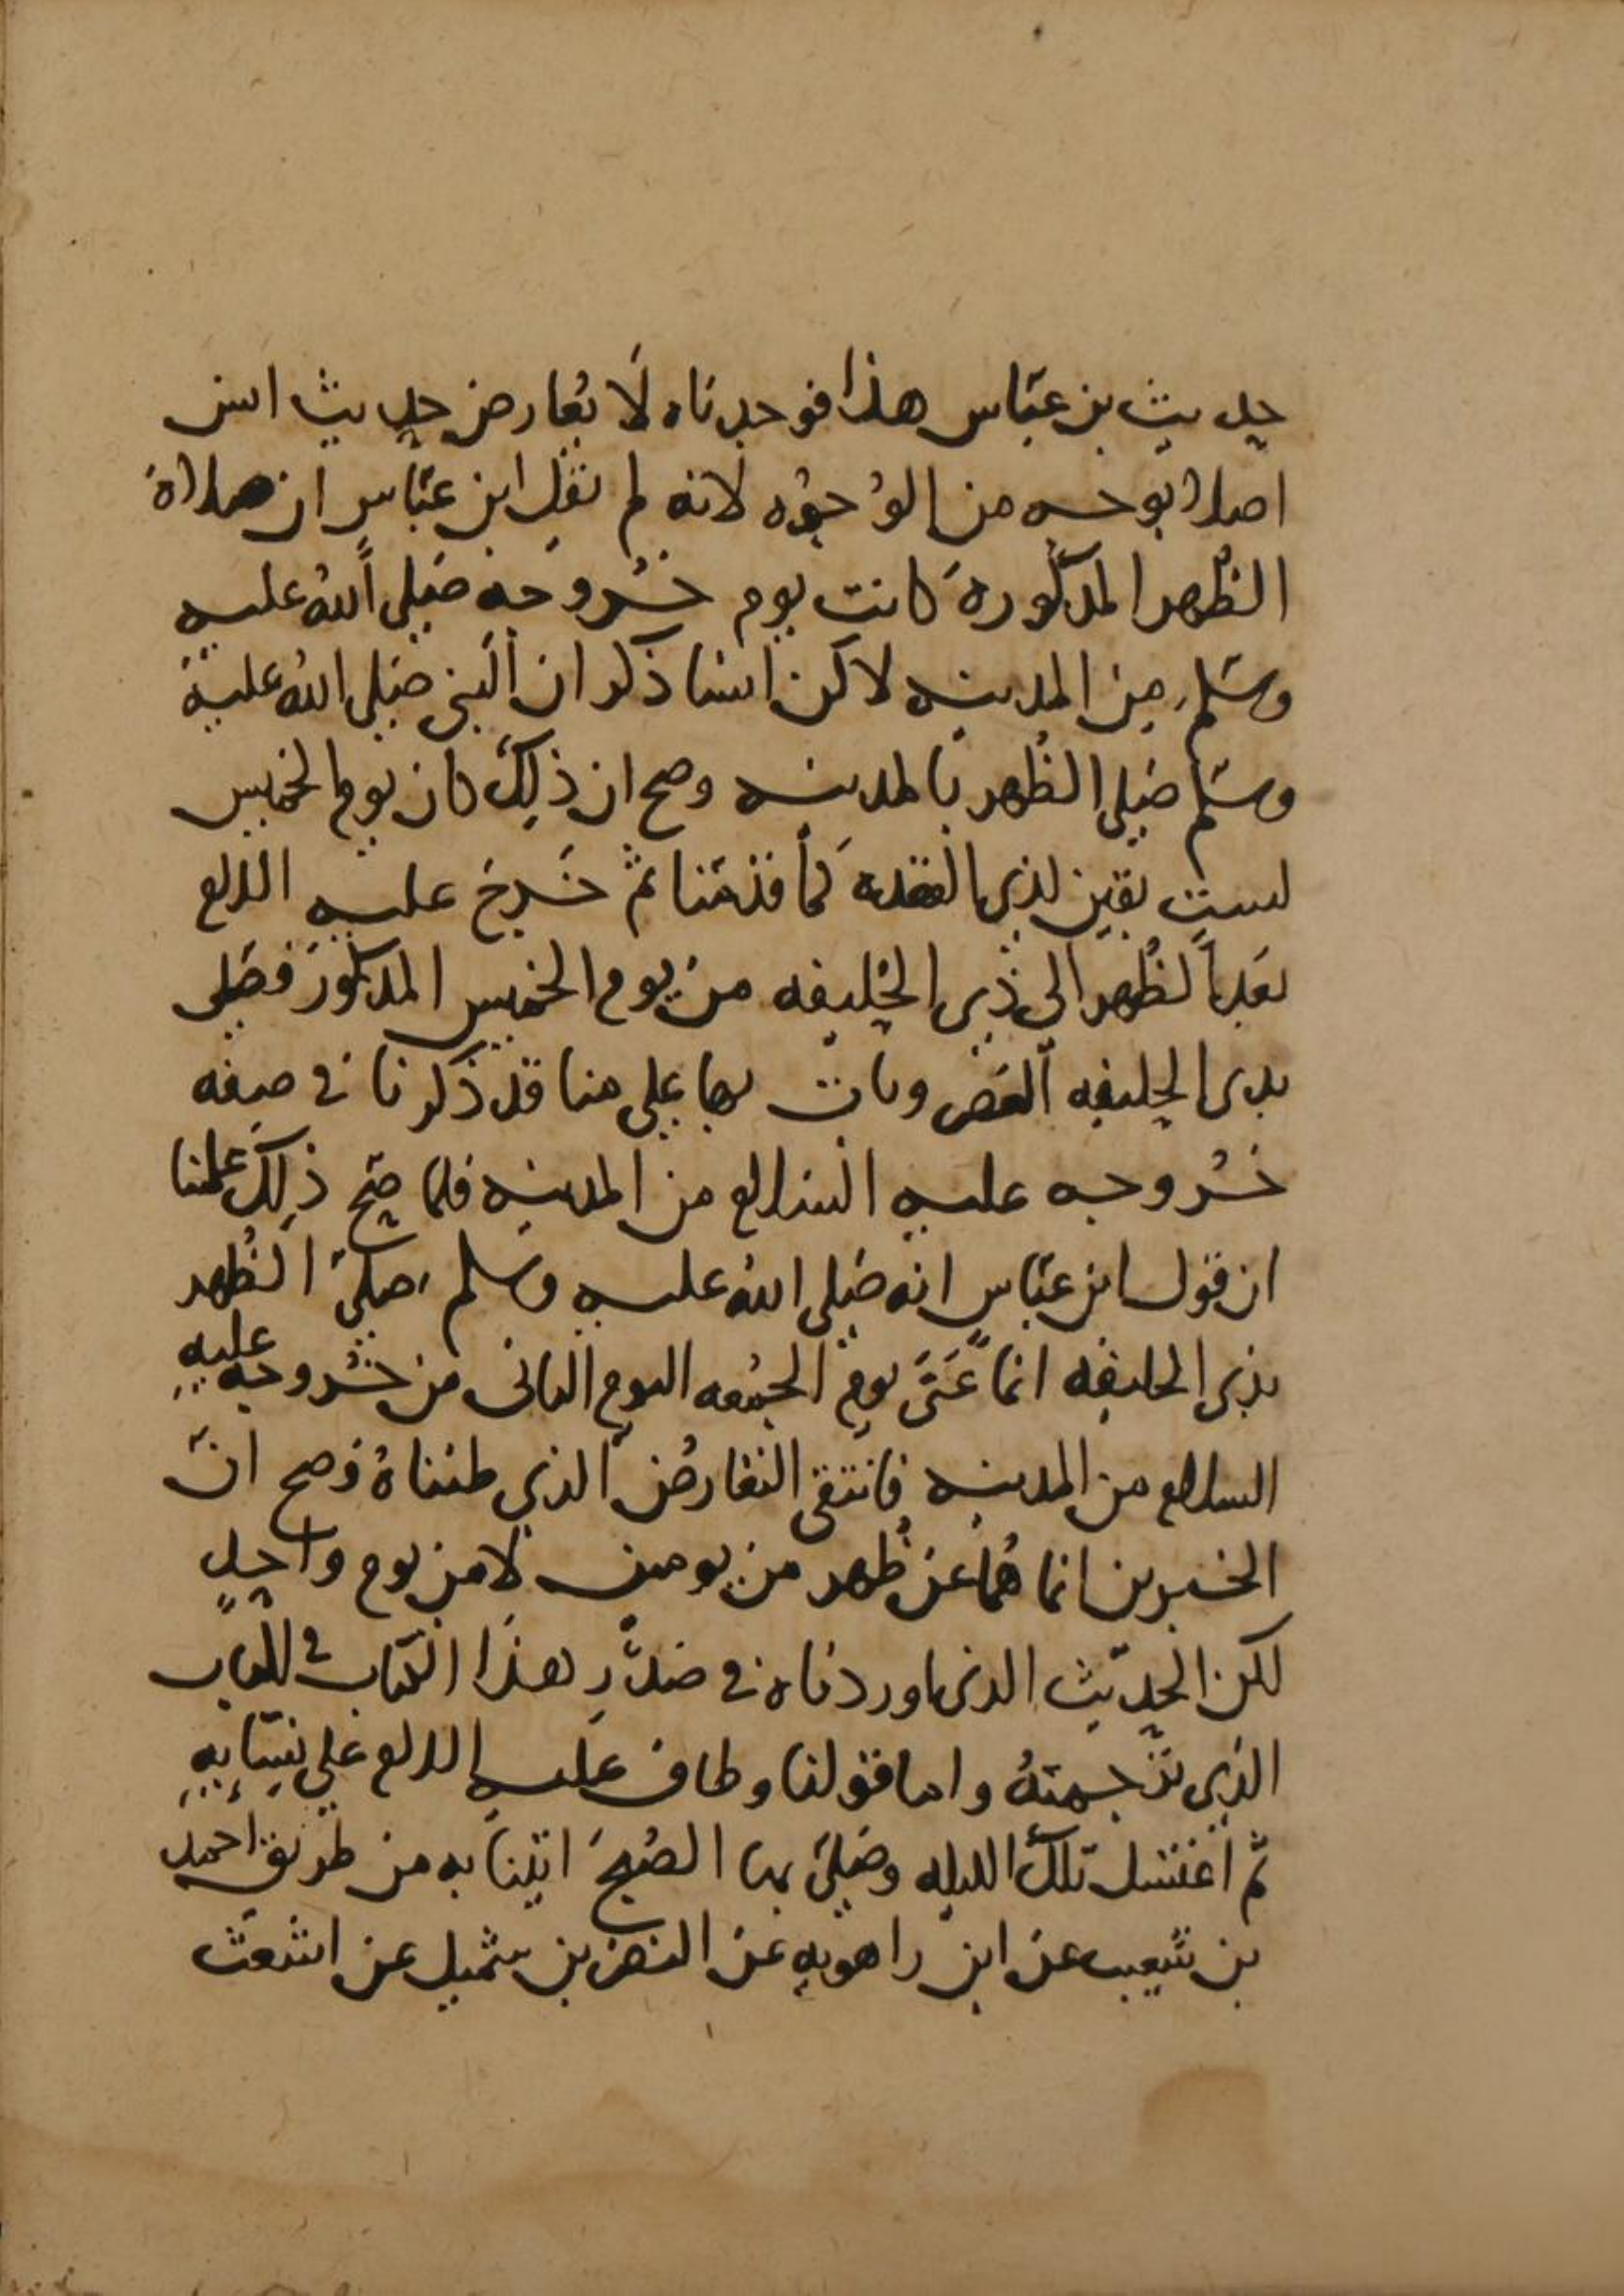 حديث بن عباس هذا فوجدناه لا يعارض حديث انس
اصلا بوجه من الوجوه لانه لم يقل ابن عباس ان صلاة
الظهر المذكورة كانت يوم خروجه صلى الله عليه
وسلم من المدينه لاكن انسا ذكر ان النبي صلى الله عليه
وسلم صلى الظهر بالمدينه وصح ان ذلك كان يوم الخميس
لست بقين لذي القعده كما قدمنا ثم خرج عليه اللم
بعد الظهر الى ذي الحليفه من يوم الخميس المذكور فصلى
بذي الحليفه العصر وبات بها على هنا قد ذكرنا في صفه
خروجه عليه السلم من المدينه فلما صح ذلك علمنا
ان قول ابن عباس انه صلى الله عليه وسلم صلى الظهر
بذي الحليفه انما عنى يوم الجمعه اليوم الثاني من خروجه عليه
السلم من المدينه فانتفى التعارض الذي ظنناه فصح ان
الخبرين انما هما عن ظهر من يومين لا من يوم واحد
لكن الحديث الذي اوردناه في صدر هذا الكتاب في الباب
الذي ترجمته واما قولنا وطاف عليه اللم على نسايه
ثم اغتسل تلك الليله وصلى بها الصبح اتينا به من طريق احمد
بن شعيب عن ابن راهويه عن النضر بن شميل عن اشعث